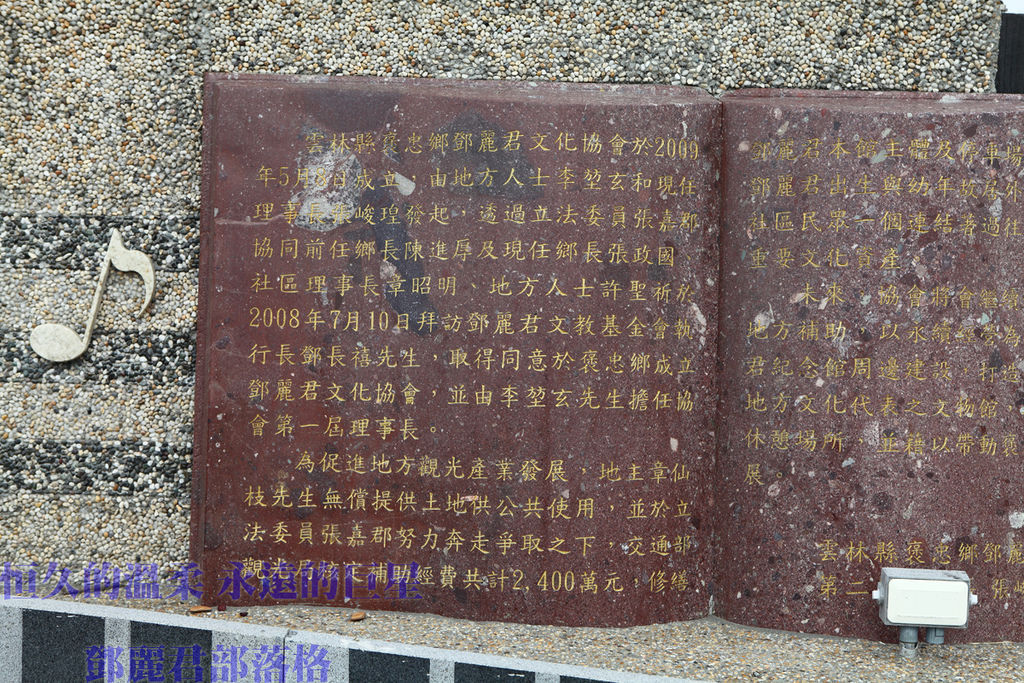 雲林縣褒忠鄉鄧麗君文化協會於2009
年5月8日成立，由地方人士李堃玄和現任
理事長張峻瑝發起，透過立法委員張嘉郡
協同前任鄉長陳進厚及現任鄉長張政國、
社區理事長章昭明、地方人士許聖祈於
2008年7月10日拜訪鄧麗君文教基金會執
行長鄧長禧先生，取得同意於褒忠鄉成立
鄧麗君文化協會，並由李堃玄先生擔任協
會第一屆理事長。
為促進地方觀光產業發展，地主章仙
枝先生無償提供土地供公共使用，並於立
法委員張嘉郡努力奔走爭取之下，交通部
觀光局核定補助經費共計2,400萬元，修繕
鄧麗君本館主體及停車場
鄧麗君出生與幼年故居外
社區民眾一個連結著過往
重要文化資產。
未來，協會將會繼續
地方補助，以永續經營為
君紀念館周邊建設，打造
地方文化代表之文物館、
休憩場所，並藉以帶動褒
展。
雲林縣褒忠鄉鄧麗
第二 張峻
恒久的溫柔 永遠的巨星
鄧麗君部落格